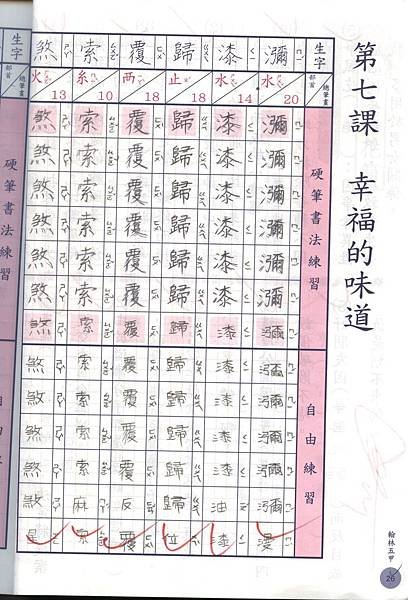 第七課 幸福的味道
生字 部首 總筆畫 硬筆書法練習 自由練習
瀰 水 20 瀰瀰瀰瀰瀰瀰瀰 瀰瀰瀰瀰瀰漫
漆 水 14 漆漆漆漆漆漆漆 漆漆漆漆油漆
歸 止 18 歸歸歸歸歸歸歸 歸歸歸歸歸位
覆 襾 18 覆覆覆覆覆覆覆 覆覆覆覆反覆
索 糸 10 索索索索索索索 索索索索麻
煞 火 13 煞煞煞煞煞煞煞 煞煞煞煞煞是
生字 硬筆書法練習 自由
翰林五甲
26